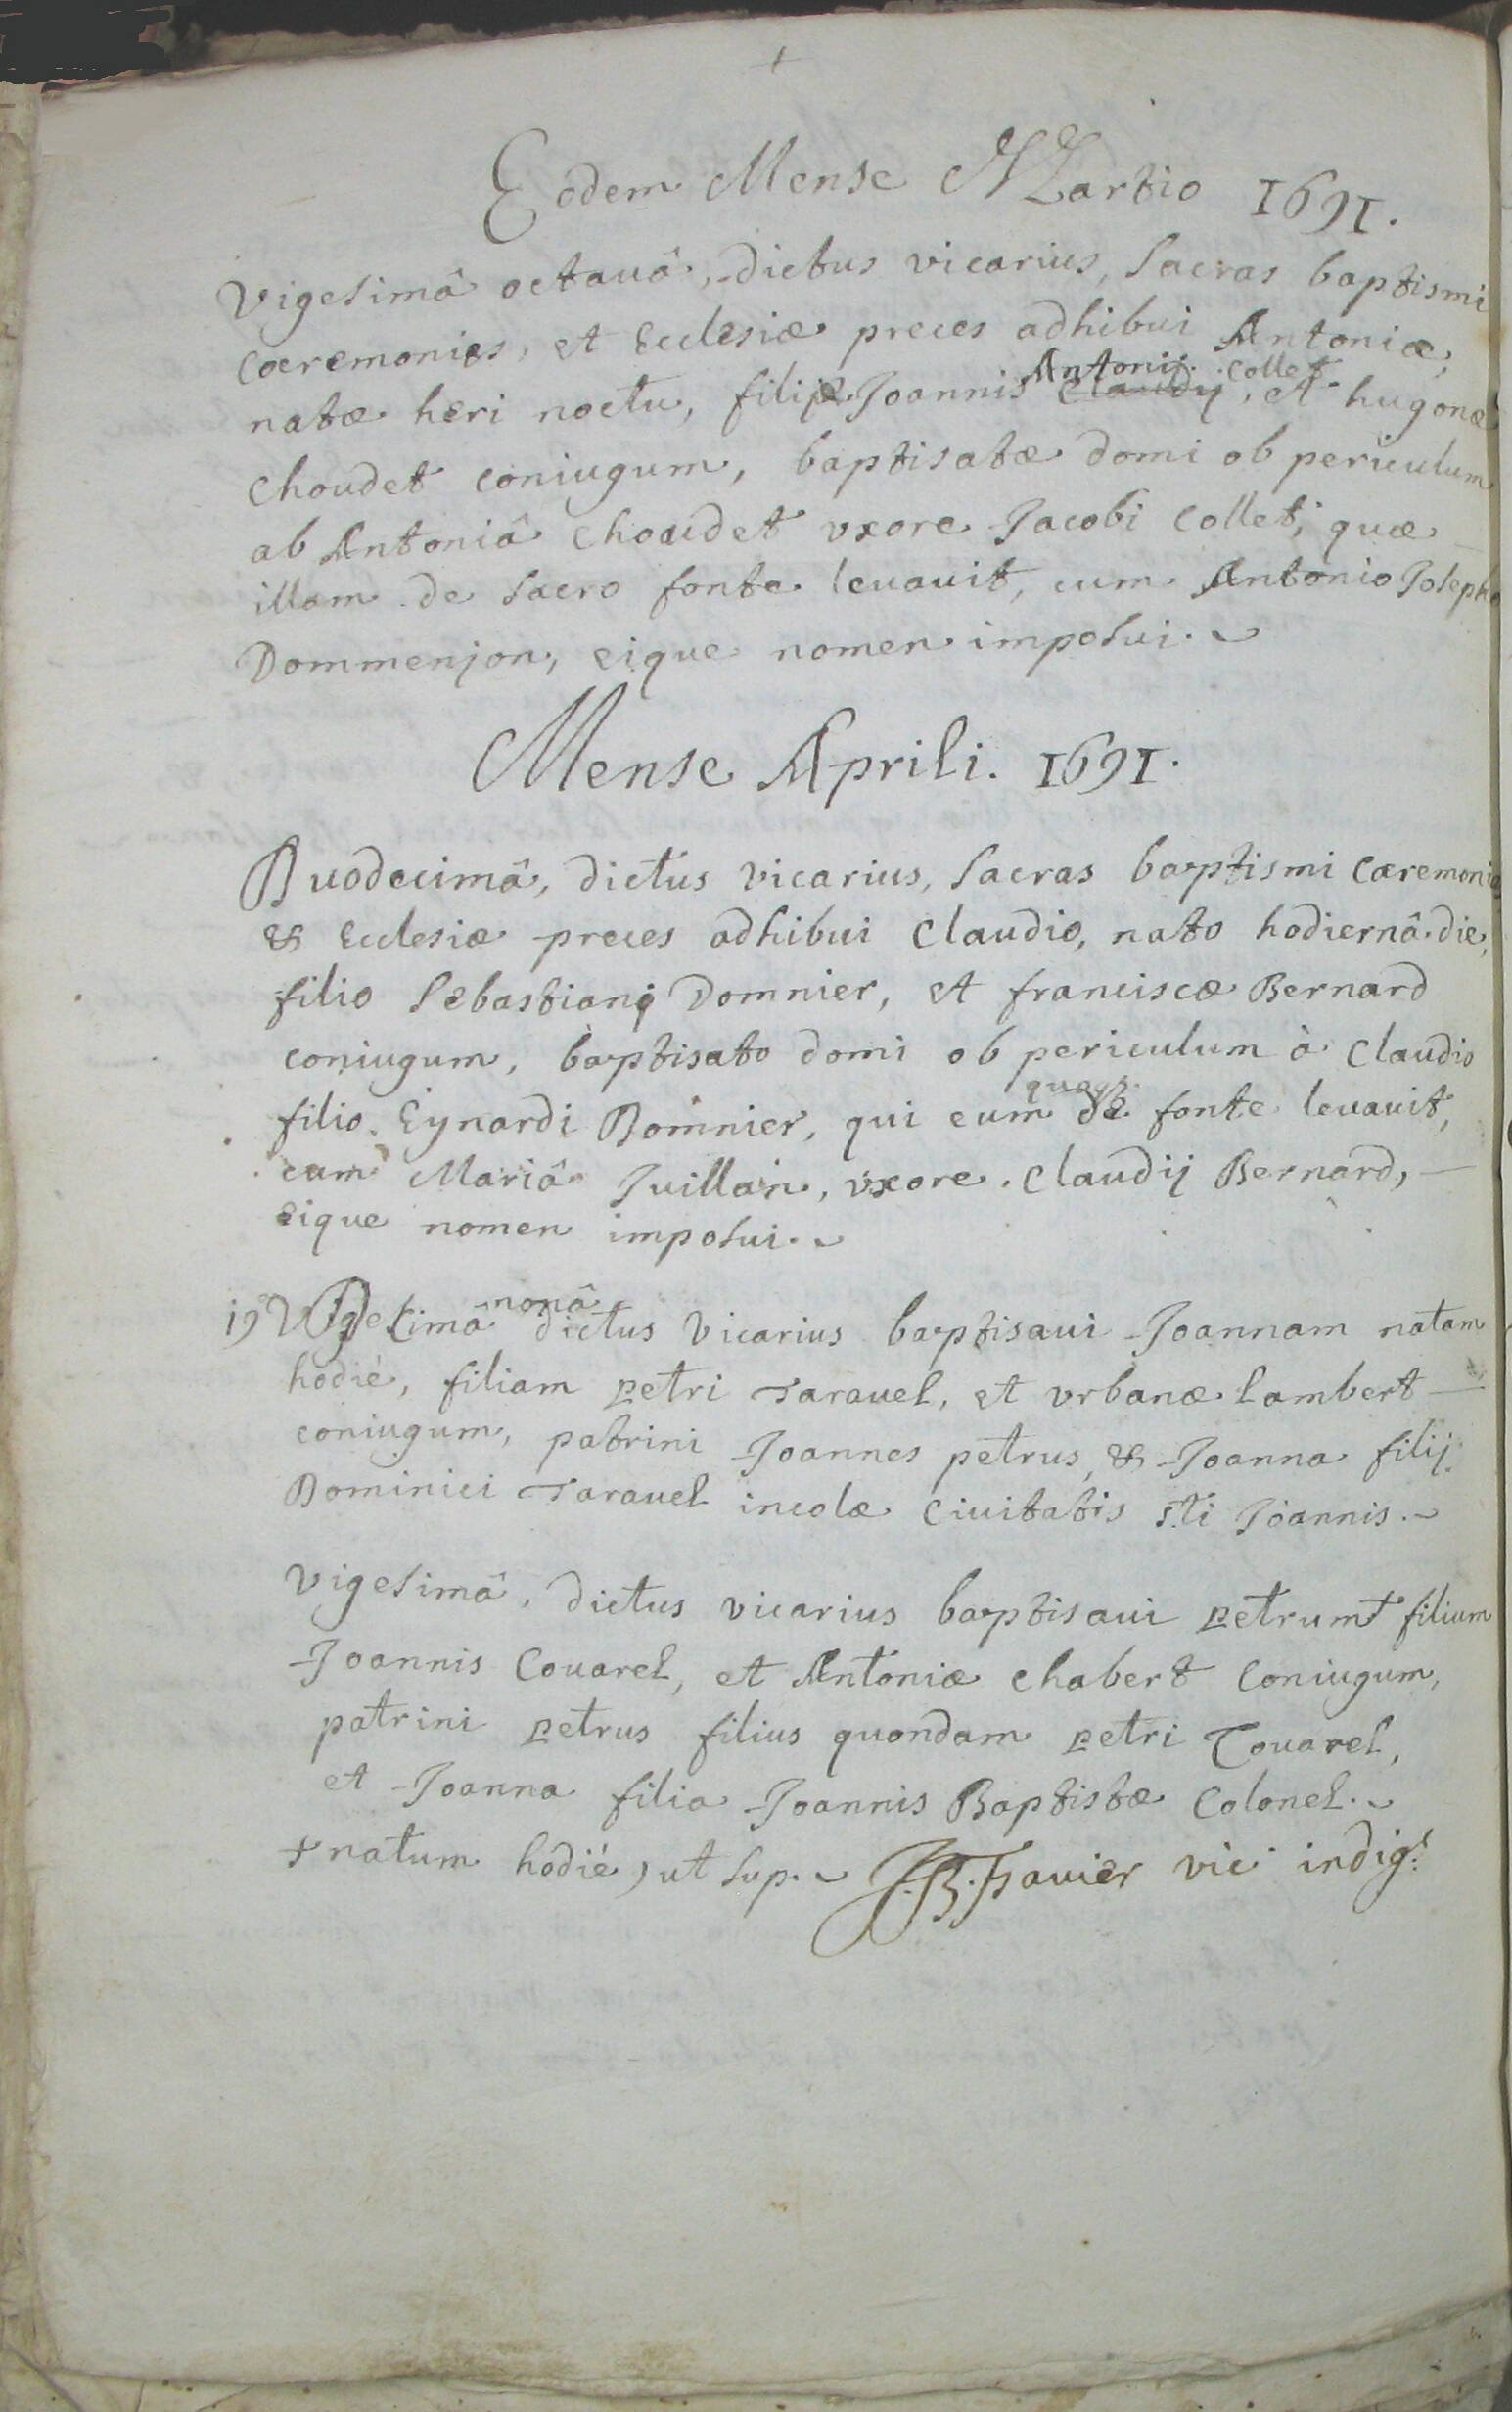 +
Eodem Mense Martio 1691.
Vigesimâ octauâ, dictus vicarius, sacras baptismi
cæremonias, et Ecclesiæ preces adhibui Antoniæ,
natæ heri noctu, filiæ Joannis Claudij Antonij collet, et hugonæ
Choudet coniugum, baptisatæ domi ob periculum
ab Antoniâ Choudet vxore Jacobi Collet, quæ
illam de sacro fonte leuauit, cum Antonio Josepho
Dommenjon, eique nomen imposui.
Mense Aprili. 1691.
Duodecimâ, dictus vicarius, sacras baptismi cæremonias
& Ecclesiæ preces adhibui Claudio, nato hodiernâ die,
filio Sebastiani Domnier, et franciscæ Bernard
coniugum, baptisato domi ob periculum à Claudio
filio Eynardi Domnier, qui eum quoq; de fonte leuauit,
cum Mariâ Juillain, vxore Claudij Bernard,
eique nomen imposui.
19 Vigesimâ nonâ dictus vicarius baptisaui Joannam natam
hodiè, filiam petri Tarauel, et vrbanæ Lambert
coniugum, patrini Joannes petrus, & Joanna filij
Dominici Tarauel incolæ Ciuitatis sti Joannis.
Vigesimâ, dictus vicarius baptisaui petrum + filium
Joannis Couarel, et Antoniæ chabert coniugum,
patrini petrus filius quondam petri Couarel,
et Joanna filia Joannis Baptistæ Colonel.
+ natum hodiè, ut sup. vic. indig.s